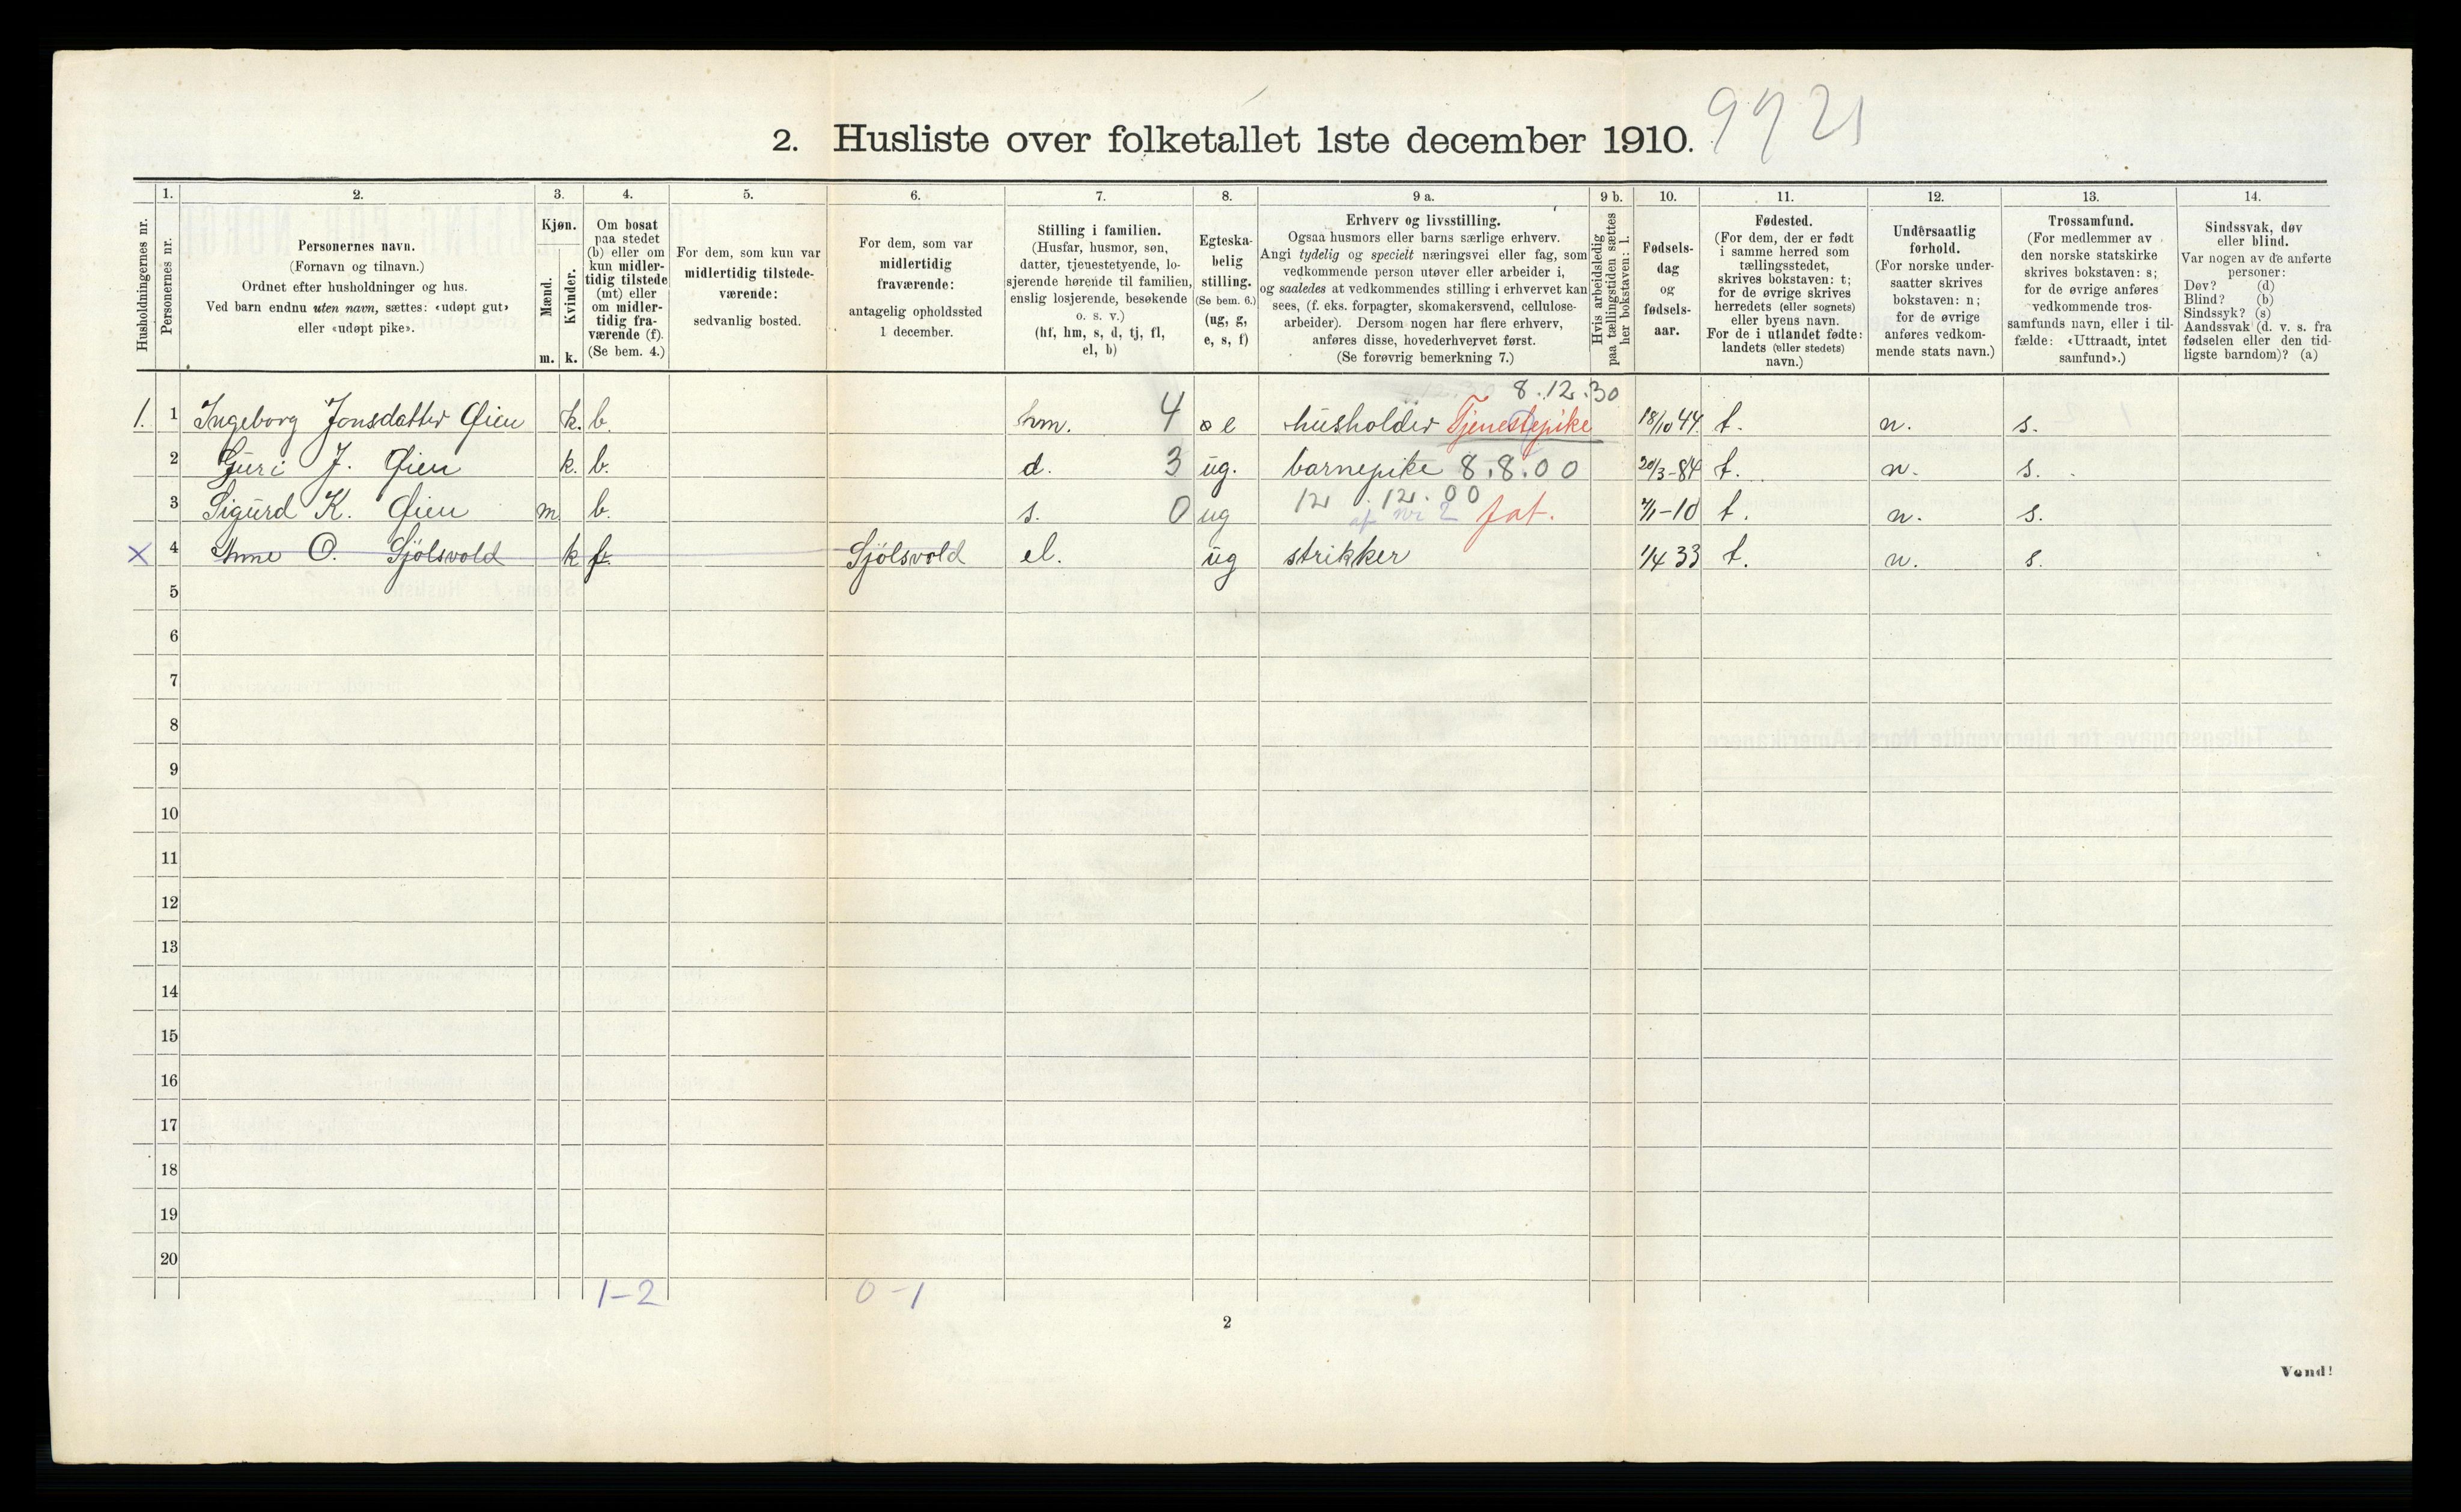 2. Husliste over folketallet 1ste december 1910.
1. 2. 3. 4. 5. 6. 7. 8. 9 a. 9 b. 10. 11. 12. 13. 14.
Husholdningernes nr.
Personernes nr.
Personernes navn.
(Fornavn og tilnavn.)
Ordnet efter husholdninger og hus.
Ved barn endnu uten navn, sættes: «udøpt gut»
eller «udøpt pike».
Kjøn.
Mænd.
Kvinder.
m. k.
Om bosat
paa stedet
(b) eller om
kun midler-
tidig tilstede
(mt) eller
om midler-
tidig fra-
værende (f).
(Se bem. 4.)
For dem, som kun var
midlertidig tilstede-
værende:
sedvanlig bosted.
For dem, som var
midlertidig
fraværende:
antagelig opholdssted
1 december.
Stilling i familien.
(Husfar, husmor, søn,
datter, tjenestetyende, lo-
sjerende hørende til familien,
enslig losjerende, besøkende
o. s. v.)
(hf, hm, s, d, tj, fl,
el, b)
Egteska-
belig
stilling.
(Se bem. 6.)
(ug, g,
e, s, f)
Erhverv og livsstilling.
Ogsaa husmors eller barns særlige erhverv.
Angi tydelig og specielt næringsvei eller fag, som
vedkommende person utøver eller arbeider i,
og saaledes at vedkommendes stilling i erhvervet kan
sees, (f. eks. forpagter, skomakersvend, cellulose-
arbeider). Dersom nogen har flere erhverv,
anføres disse, hovederhvervet først.
(Se forøvrig bemerkning 7.)
Hvis arbeidsledig
paa tællingstiden sættes
her bokstaven: l.
Fødsels-
dag
og
fødsels-
aar.
Fødested.
(For dem, der er født
i samme herred som
tællingsstedet,
skrives bokstaven: t;
for de øvrige skrives
herredets (eller sognets)
eller byens navn.
For de i utlandet fødte:
landets (eller stedets)
navn.)
Undersaatlig
forhold.
(For norske under-
saatter skrives
bokstaven: n;
for de øvrige
anføres vedkom-
mende stats navn.)
Trossamfund.
(For medlemmer av
den norske statskirke
skrives bokstaven: s;
for de øvrige anføres
vedkommende tros-
samfunds navn, eller i til-
fælde: «Uttraadt, intet
samfund».)
Sindssvak, døv
eller blind.
Var nogen av de anførte
personer:
Døv? (d)
Blind? (b)
Sindssyk? (s)
Aandssvak (d. v. s. fra
fødselen eller den tid-
ligste barndom)? (a)
8.12.30
1. 1 Ingeborg Jonsdatter Øien k. b. hm. 4 e husholder Tjenestepike 18/10 44. t. n. s.
2 Guri J. Øien k. b. d. 3 ug. barnepike 8.8.00 20/3-84 t. n. s.
12.12.00
3 Sigurd K. Øien m b. s. 0 ug af nr 2 fat. t. n. s.
X 4 Anne O. Sjölsvold k f. Sjölsvold el. ug strikker 1/4 33 t. n. s.
5
6
7
8
9
10
11
12
13
14
15
16
17
18
19
20
1-2 0-1
2
Vend!